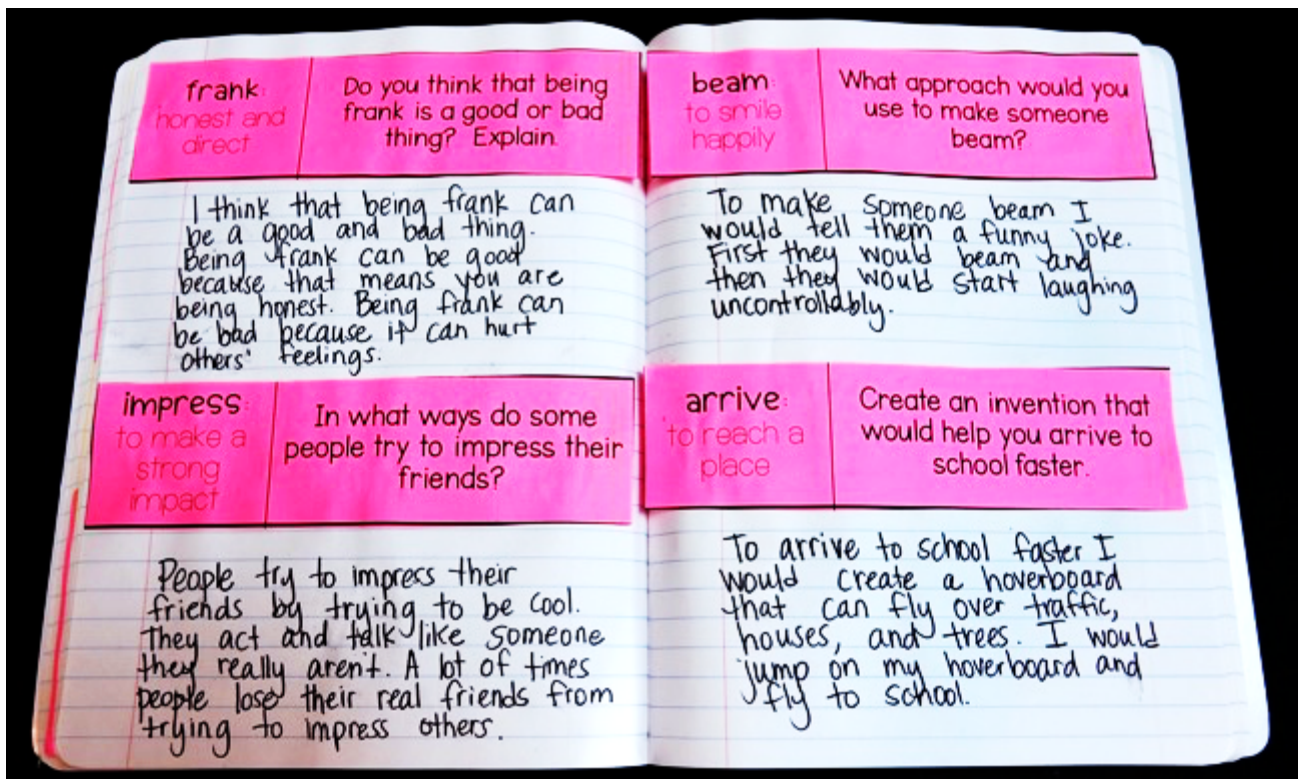 frank:
honest and
direct
Do you think that being
frank is a good or bad
thing? Explain.
I think that being frank can
be a good and bad thing.
Being frank can be good
because that means you are
being honest. Being frank can
be bad because it can hurt
others' feelings.
impress:
to make a
strong
impact
In what ways do some
people try to impress their
friends?
People try to impress their
friends by trying to be cool.
They act and talk like someone
they really arent. A lot of times
people lose their real friends from
trying to impress others.
beam:
to smile
happily
What approach would you
use to make someone
beam?
To make someone beam I
would tell them a funny joke.
First they would beam and
then they would start laughing
uncontrollably.
arrive:
to reach a
place
Create an invention that
would help you arrive to
school faster.
To arrive to school faster I
would create a hoverboard
that can fly over traffic,
houses, and trees. I would
jump on my hoverboard and
fly to school.